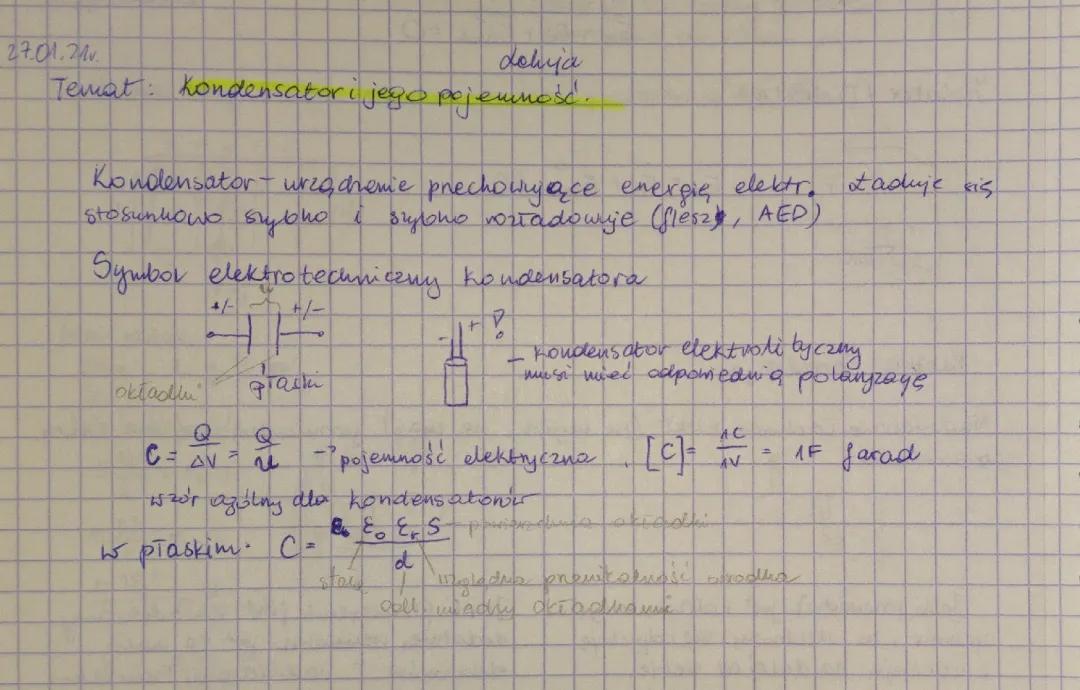 27.01.21r. Lekcja
Temat: Kondensator i jego pojemność.
Kondensator – urządzenie przechowujące energię elektr. Ładuje się
stosunkowo szybko i szybko rozładowuje (flesz, AED)
Symbol elektrotechniczny kondensatora
+/- +/-
okładki płaski
- + !
– kondensator elektrolityczny
musi mieć odpowiednią polaryzację
C = Q/ΔV = Q/U → pojemność elektryczna. [C] = 1C/1V = 1F farad
wzór ogólny dla kondensatorów
w płaskim. C = ε₀ εᵣ S / d
powierzchnia okładki
stała względna przenikalność środka
odl. między okładkami